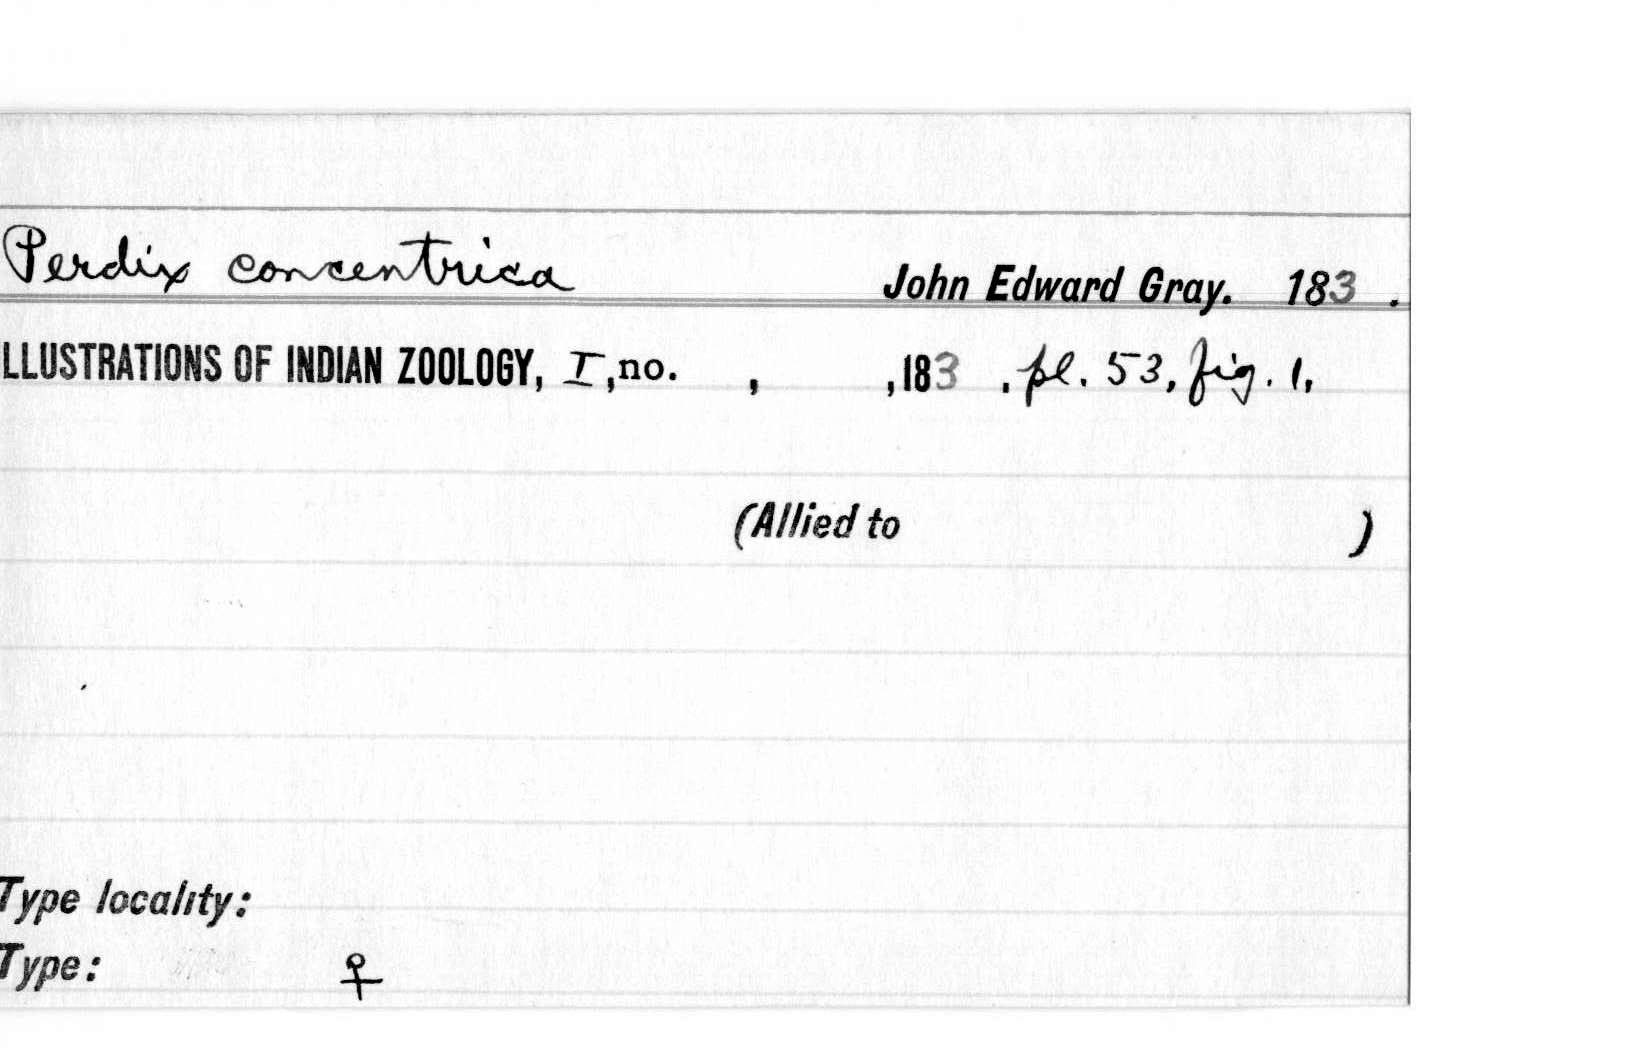 Perdix concentrica John Edward Gray. 183 .
LLUSTRATIONS OF INDIAN ZOOLOGY, I, no. , ,183 . pl. 53, fig. 1,
(Allied to )
Type locality:
Type: ♀